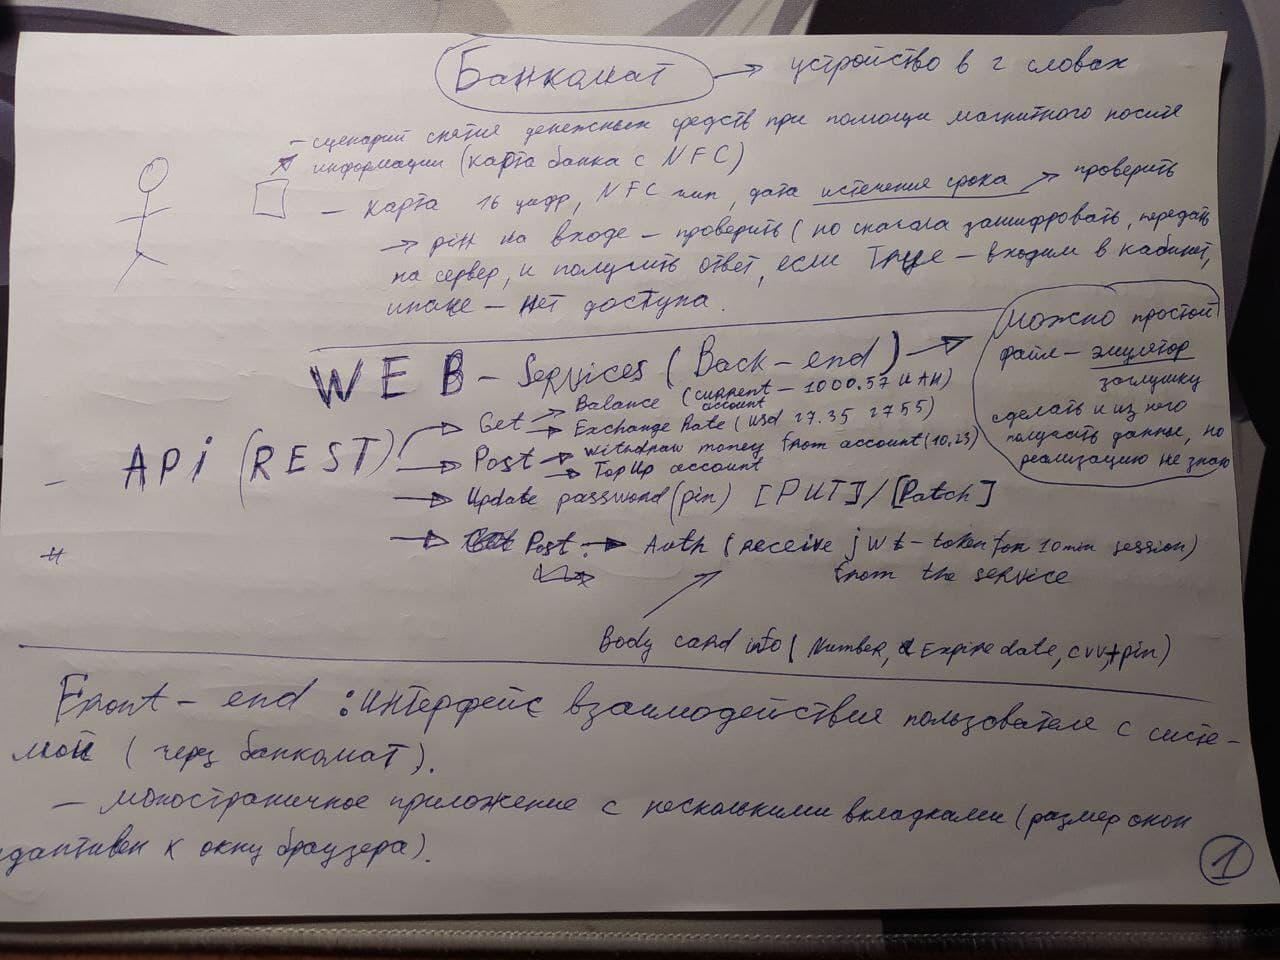 Банкомат → устройство в 2 словах
- сценарий снятия денежных средств при помощи магнитного носите
информации (карта банка с NFC)
- карта 16 цифр, NFC чип, дата истечения срока → проверить
→ pin на входе - проверить (но сначала зашифровать, передать
на сервер, и получить ответ, если True - входим в кабинет,
иначе - нет доступа.
WEB - Services (Back-end) →
можно простой
файл - эмулятор
заглушку
сделать и из него
получать данные, но
реализацию не знаю
API (REST)
→ Get → Balance (current account - 1000.57 UAH)
→ Exchange Rate (usd 27.35 27.55)
→ Post → withdraw money from account (10,23)
→ TopUp account
→ Update password (pin) [PUT]/[Patch]
→ Post → Auth (receive jwt-token for 10 min session)
from the service
Body card info (Number, Expire date, cvv, + pin)
Front-end : интерфейс взаимодействия пользователя с систе-
мой (через банкомат).
- моностраничное приложение с несколькими вкладками (размер окон
адаптивен к окну браузера).
1